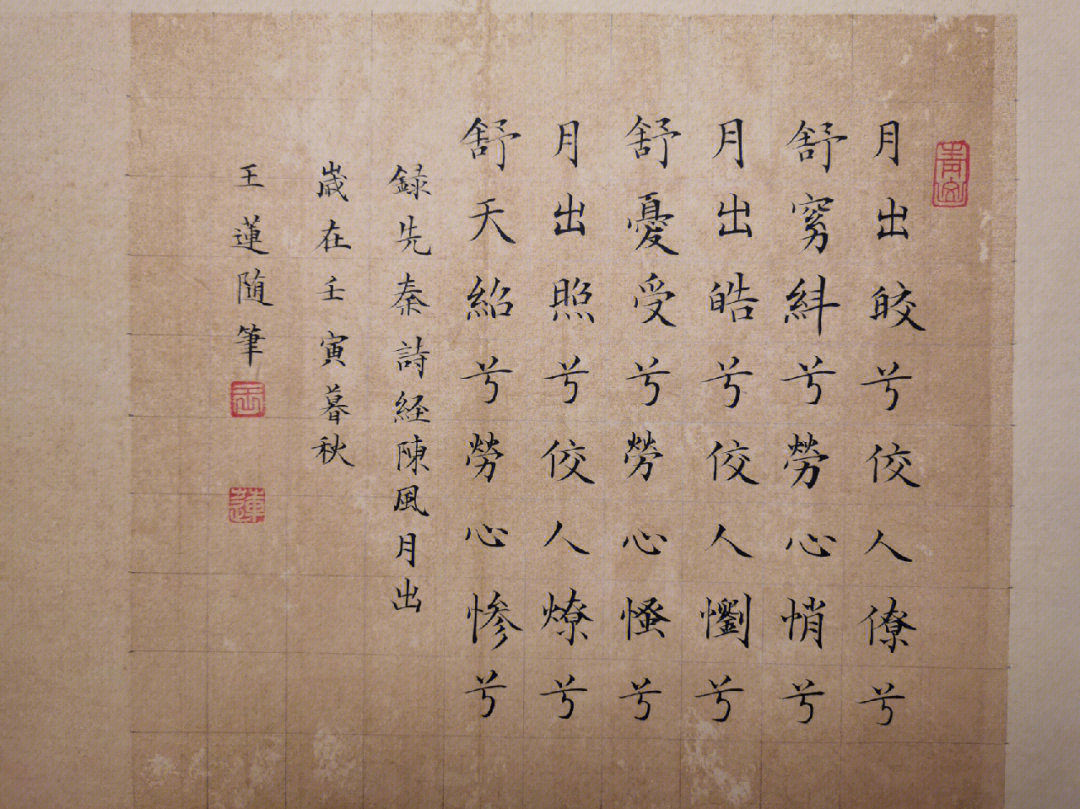 月出皎兮佼人僚兮
舒窈紏兮勞心悄兮
月出皓兮佼人懰兮
舒憂受兮勞心慅兮
月出照兮佼人燎兮
舒夭紹兮勞心惨兮
録先秦詩経陳風月出
歲在壬寅暮秋
王蓮随筆
王
蓮